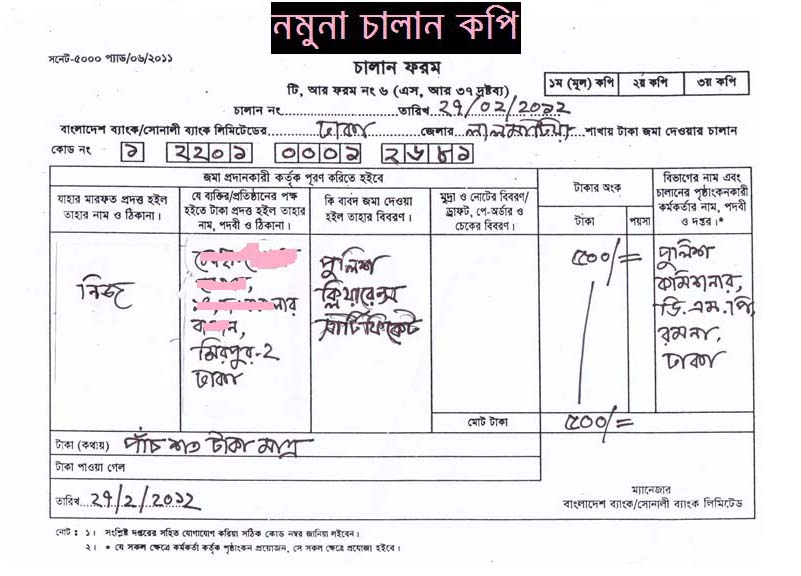 নমুনা চালান কপি
সনেট-৫০০০ প্যাড/০৬/২০১১
চালান ফরম
টি, আর ফরম নং ৬ (এস, আর ৩৭ দ্রষ্টব্য)
১ম (মূল) কপি ২য় কপি ৩য় কপি
চালান নং..............................তারিখ. ২৭/০২/২০১২
বাংলাদেশ ব্যাংক/সোনালী ব্যাংক লিমিটেডের......ঢাকা......জেলার...লালমাটিয়া...শাখায় টাকা জমা দেওয়ার চালান
কোড নং ১ ২২০১ ০০০১ ২৬৮১
জমা প্রদানকারী কর্তৃক পূরণ করিতে হইবে
যাহার মারফত প্রদত্ত হইল
তাহার নাম ও ঠিকানা।
যে ব্যক্তির/প্রতিষ্ঠানের পক্ষ
হইতে টাকা প্রদত্ত হইল তাহার
নাম, পদবী ও ঠিকানা।
কি বাবদ জমা দেওয়া
হইল তাহার বিবরণ।
মুদ্রা ও নোটের বিবরণ/
ড্রাফট, পে-অর্ডার ও
চেকের বিবরণ।
টাকার অংক
টাকা পয়সা
বিভাগের নাম এবং
চালানের পৃষ্ঠাংকনকারী
কর্মকর্তার নাম, পদবী
ও দপ্তর।*
নিজ
মিরপুর-২
ঢাকা
পুলিশ
ক্লিয়ারেন্স
সার্টিফিকেট
৫০০/=
পুলিশ
কমিশনার,
ডি.এম.পি,
রমনা,
ঢাকা
মোট টাকা ৫০০/=
টাকা (কথায়) পাঁচ শত টাকা মাত্র
টাকা পাওয়া গেল
তারিখ. ২৭/২/২০১২
ম্যানেজার
বাংলাদেশ ব্যাংক/সোনালী ব্যাংক লিমিটেড
নোট : ১। সংশ্লিষ্ট দপ্তরের সহিত যোগাযোগ করিয়া সঠিক কোড নম্বর জানিয়া লইবেন।
২। * যে সকল ক্ষেত্রে কর্মকর্তা কর্তৃক পৃষ্ঠাংকন প্রয়োজন, সে সকল ক্ষেত্রে প্রযোজ্য হইবে।